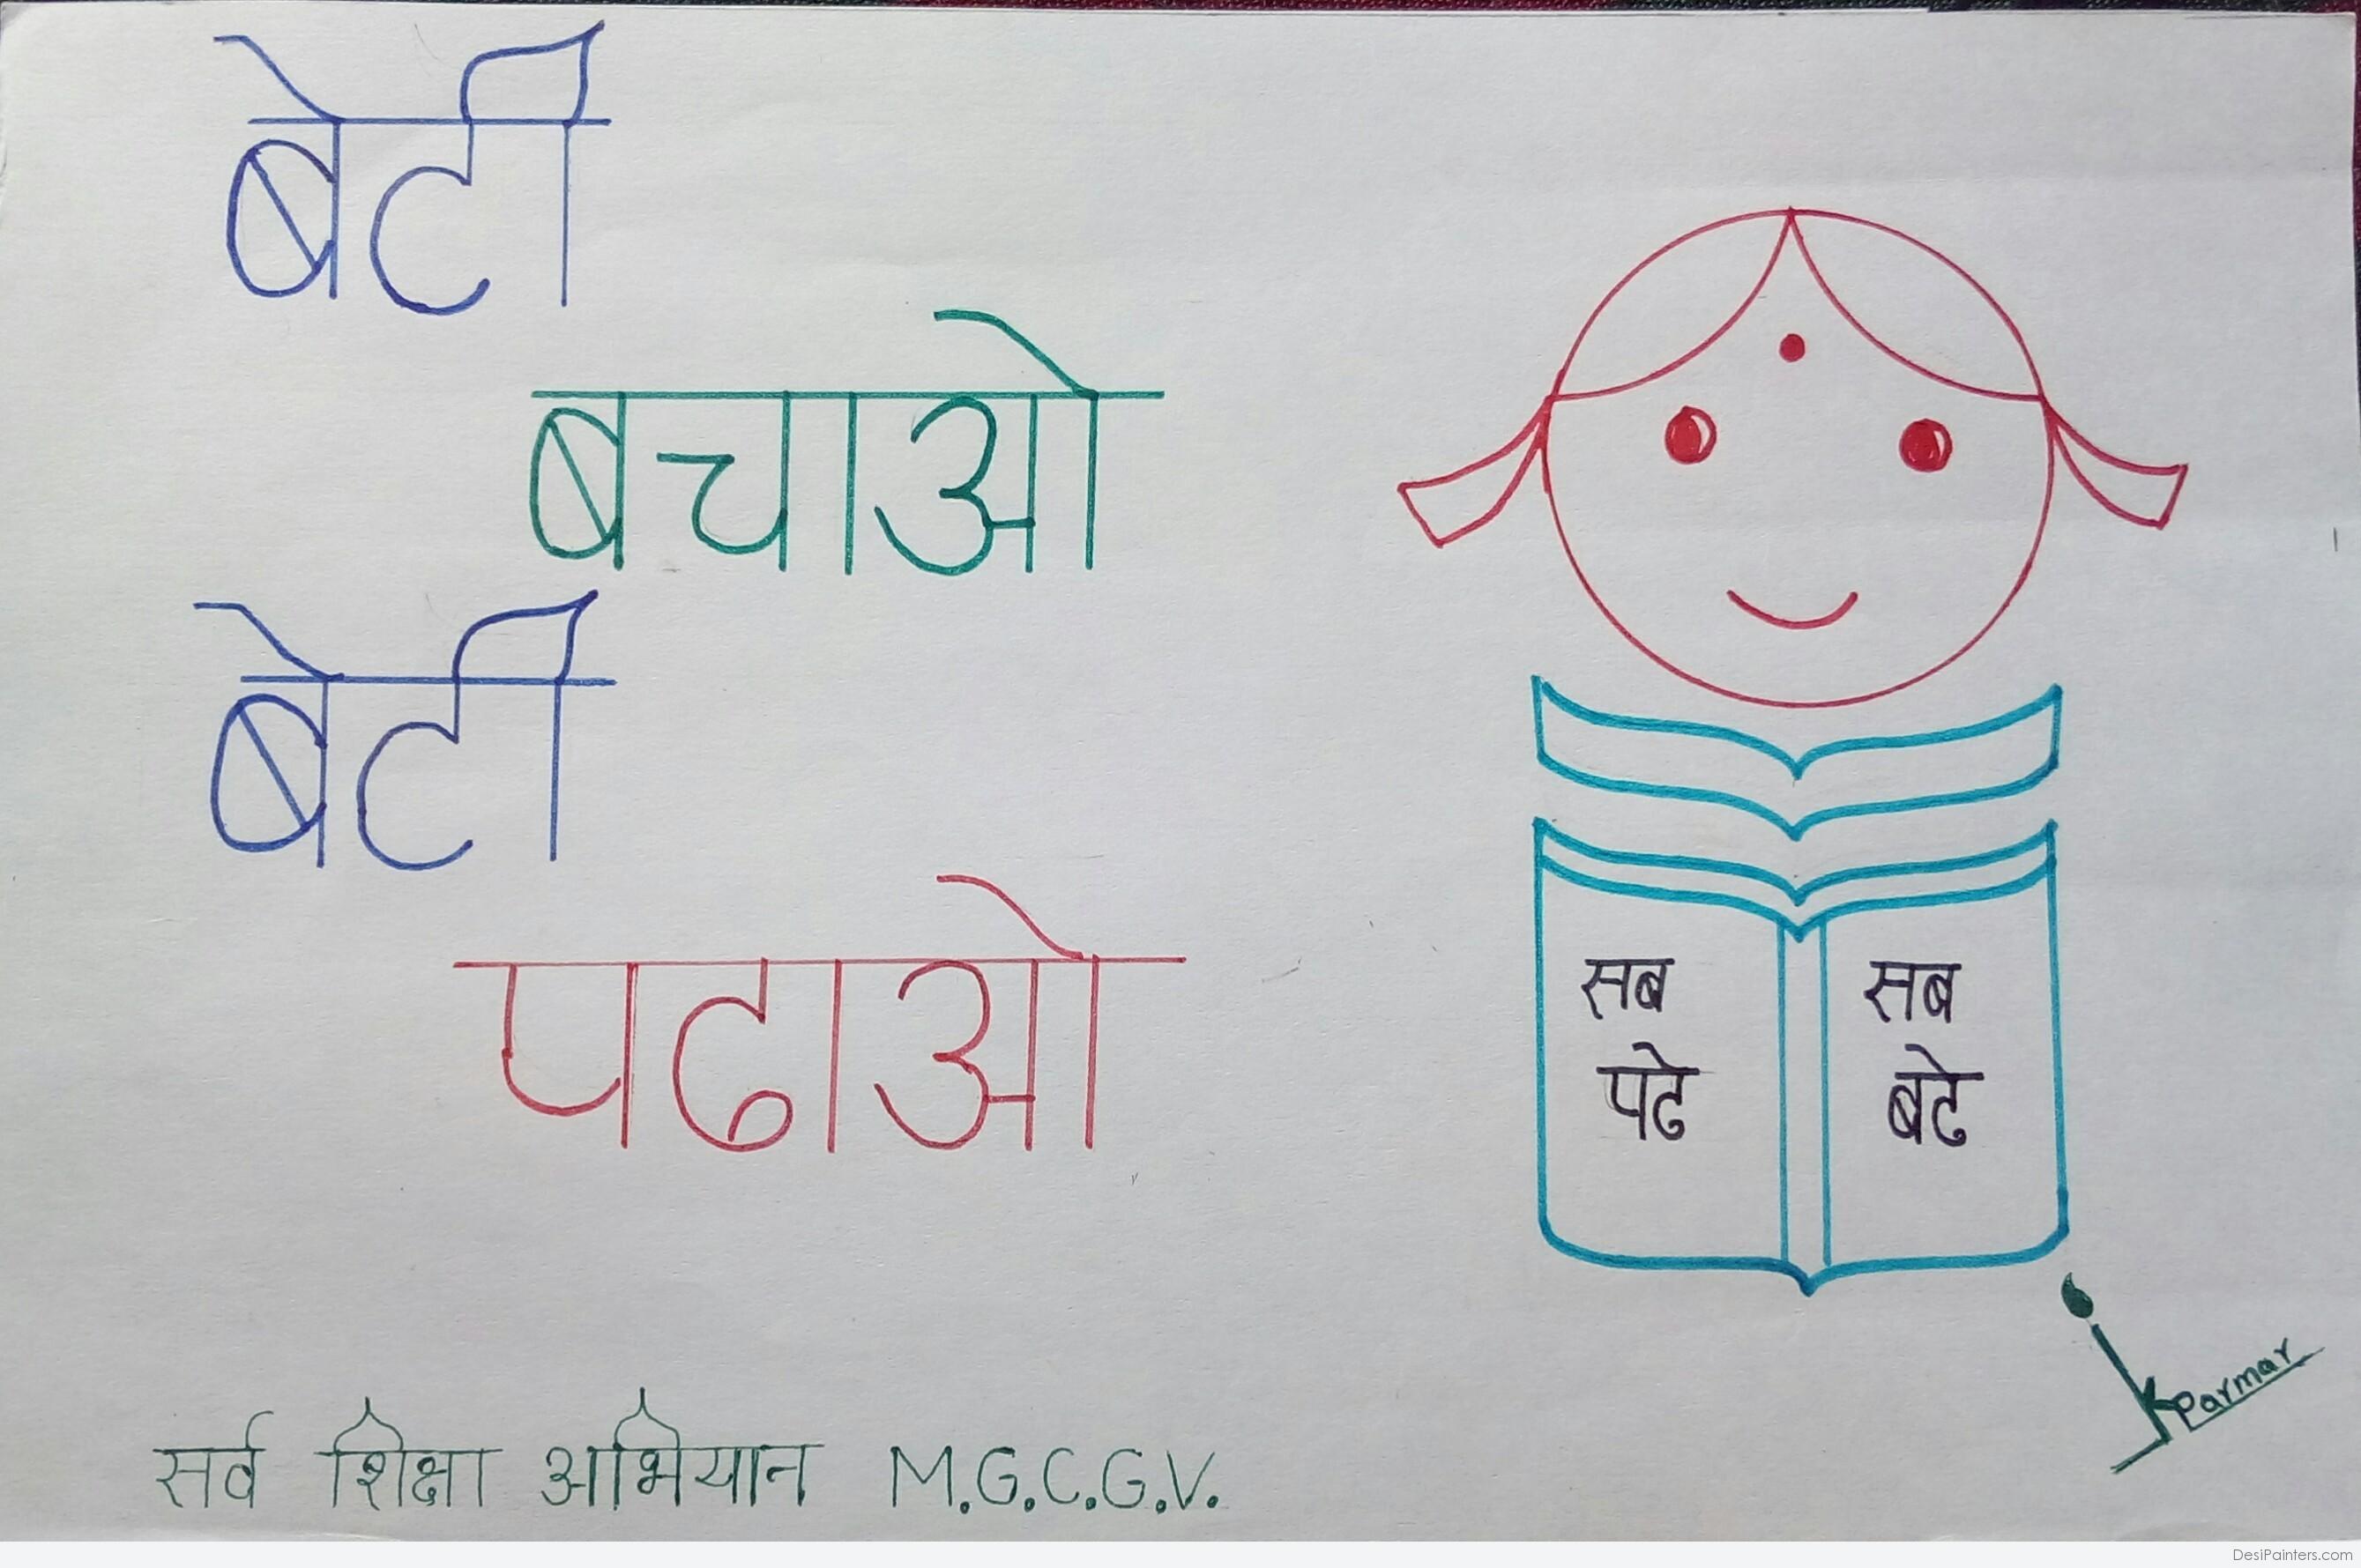 बेटी
बचाओ
बेटी
पढाओ
सब
पढे
सब
बढे
सर्व शिक्षा अभियान M.G.C.G.V.
K Parmar
DesiPainters.com